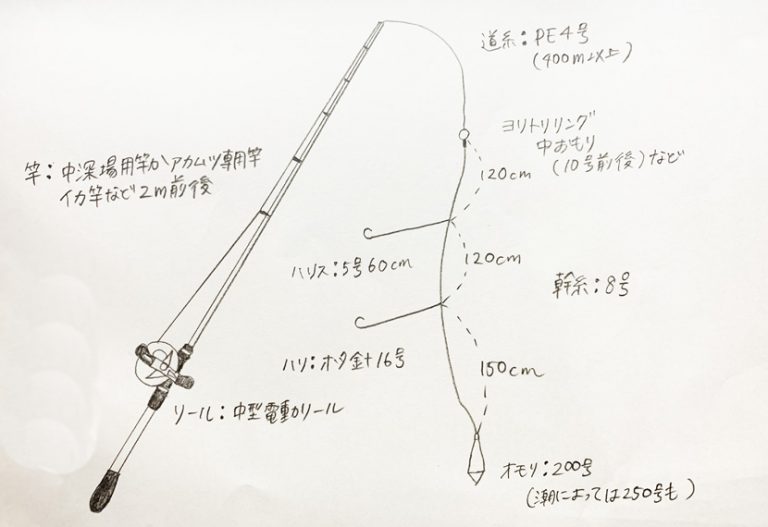 道糸：PE4号
(400m以上)
ヨリトリリング
中おもり
(10号前後)など
竿：中深場用竿かアカムツ専用竿
イカ竿など2m前後
120cm
ハリス：5号60cm
120cm
幹糸：8号
ハリ：ホタ針16号
150cm
リール：中型電動リール
オモリ：200号
(潮によっては250号も)